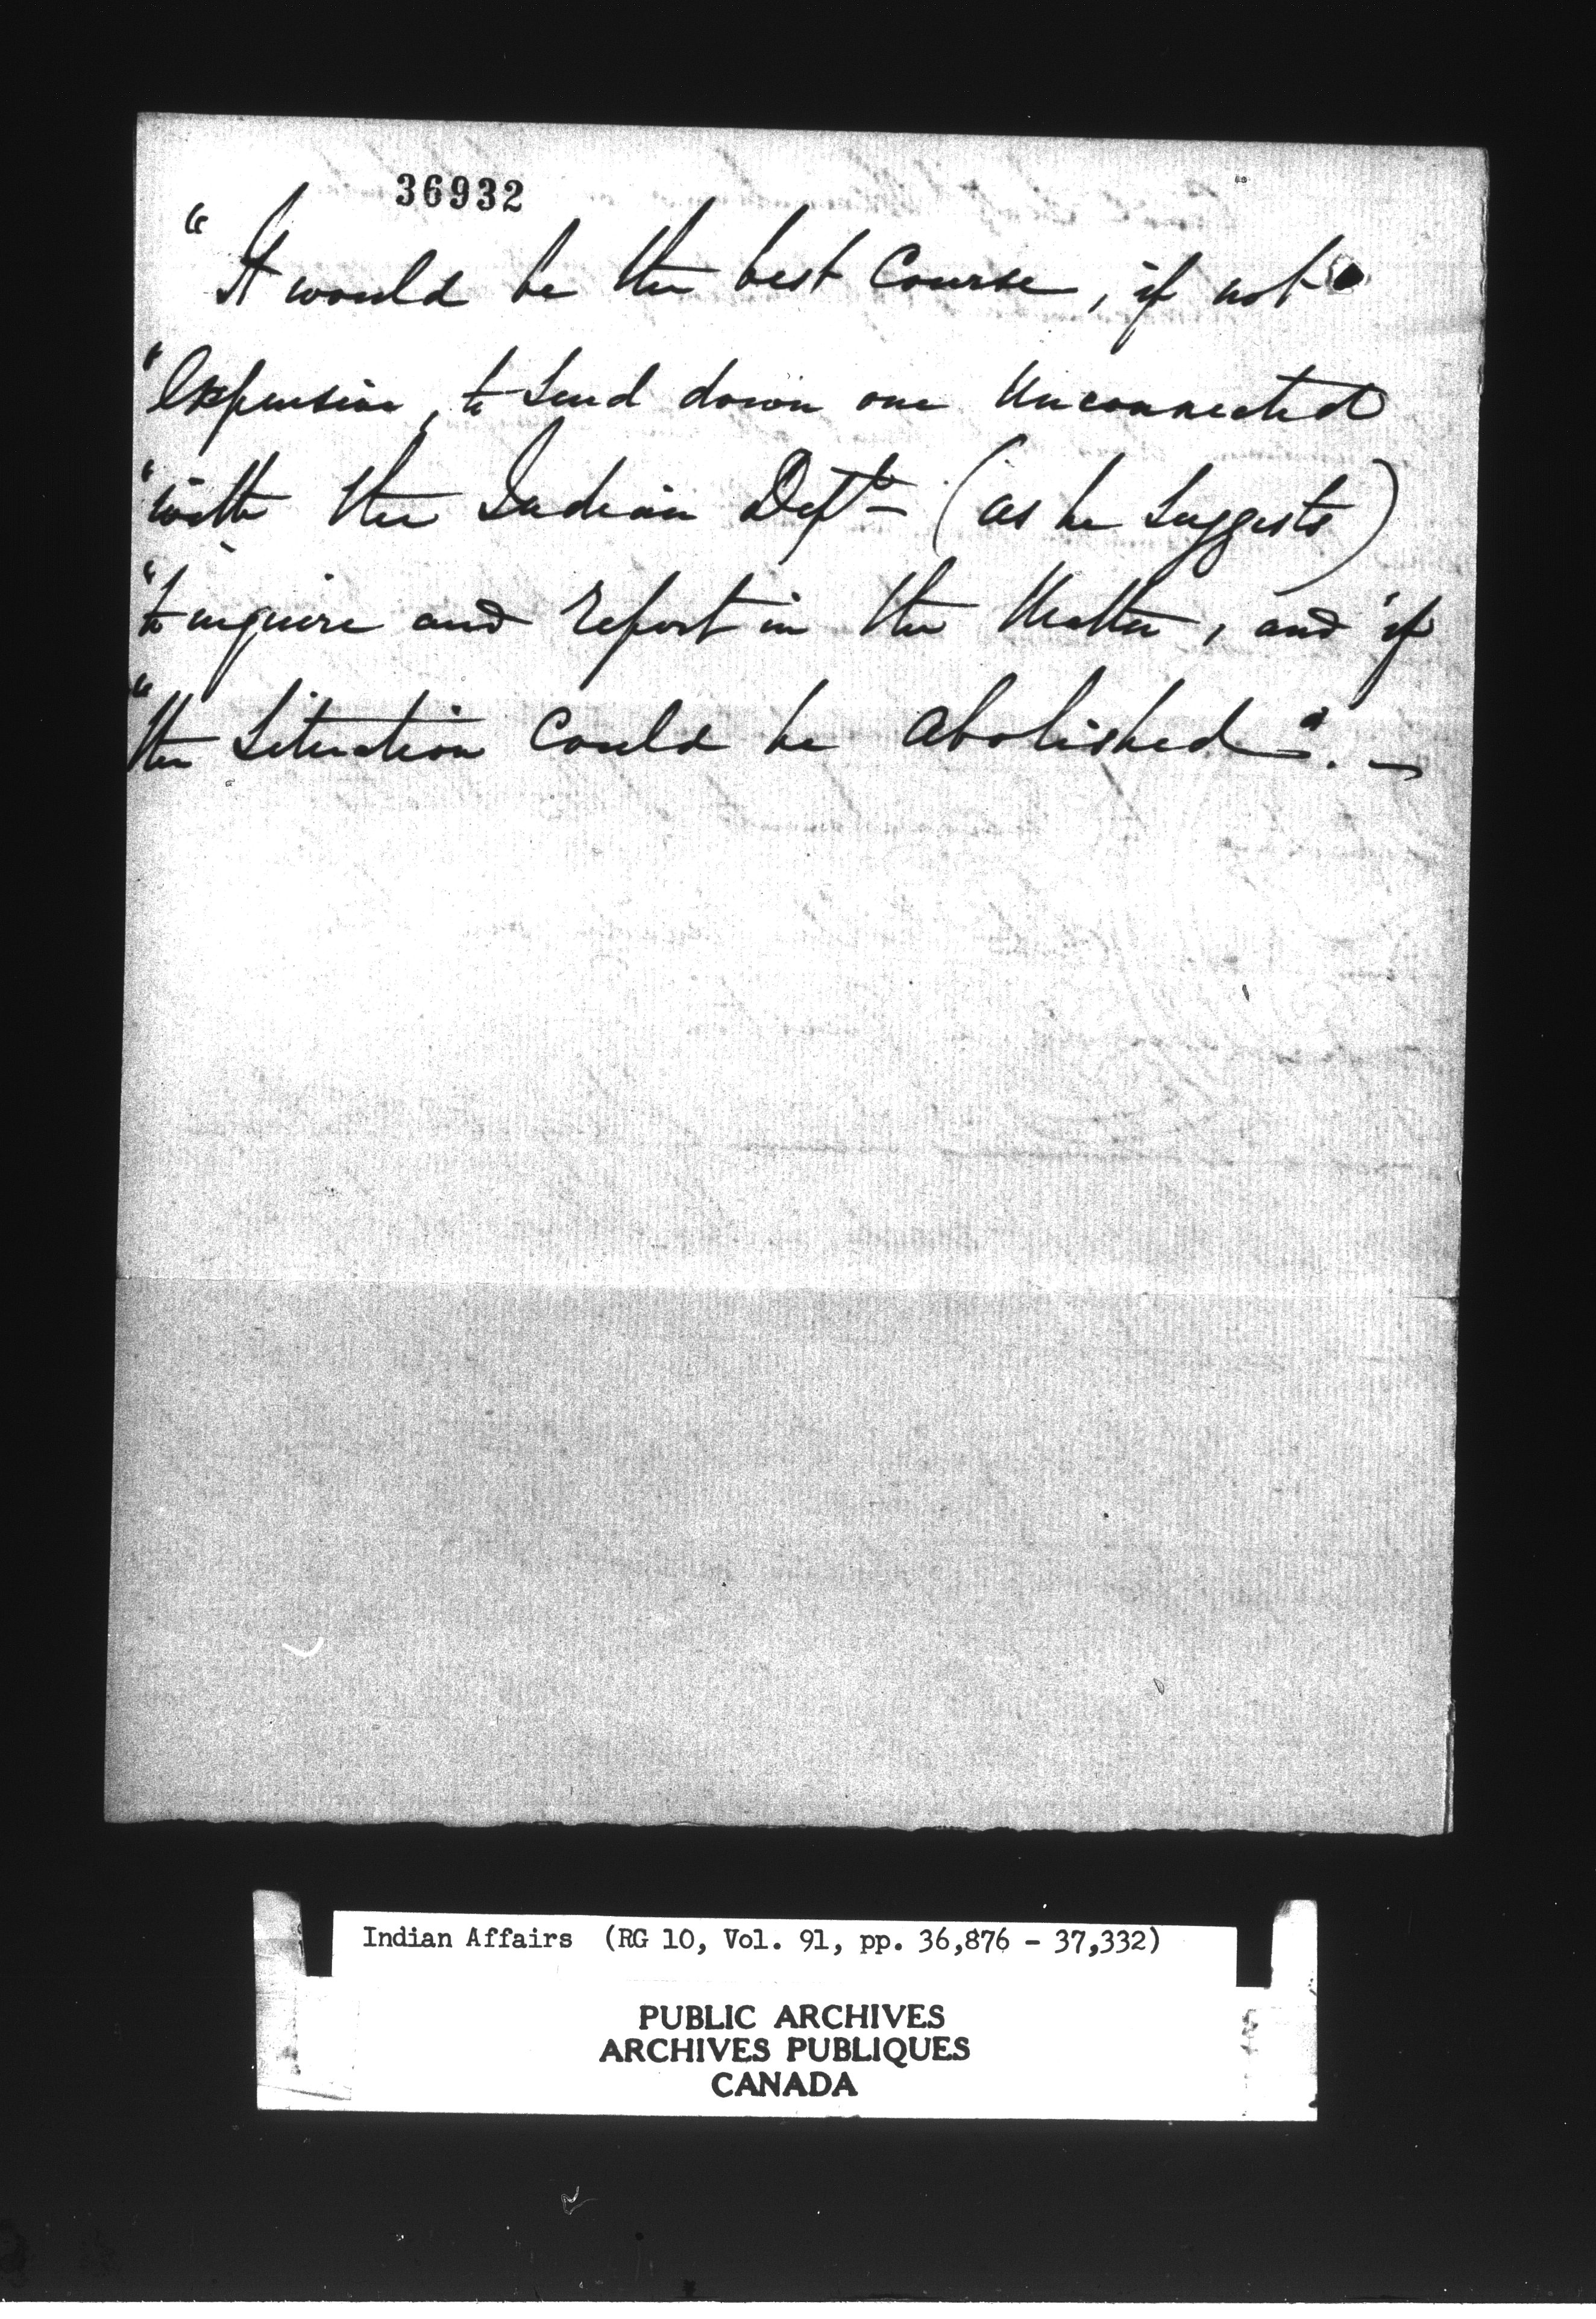 36932
“It would be the best Course, if not
“expensive, to Send down one Unconnected
“with the Indian Dept- (as he Suggests)
“to inquire and report in the Matter, and if
“the Situation Could be abolished”. —
Indian Affairs (RG 10, Vol. 91, pp. 36,876 - 37,332)
PUBLIC ARCHIVES
ARCHIVES PUBLIQUES
CANADA